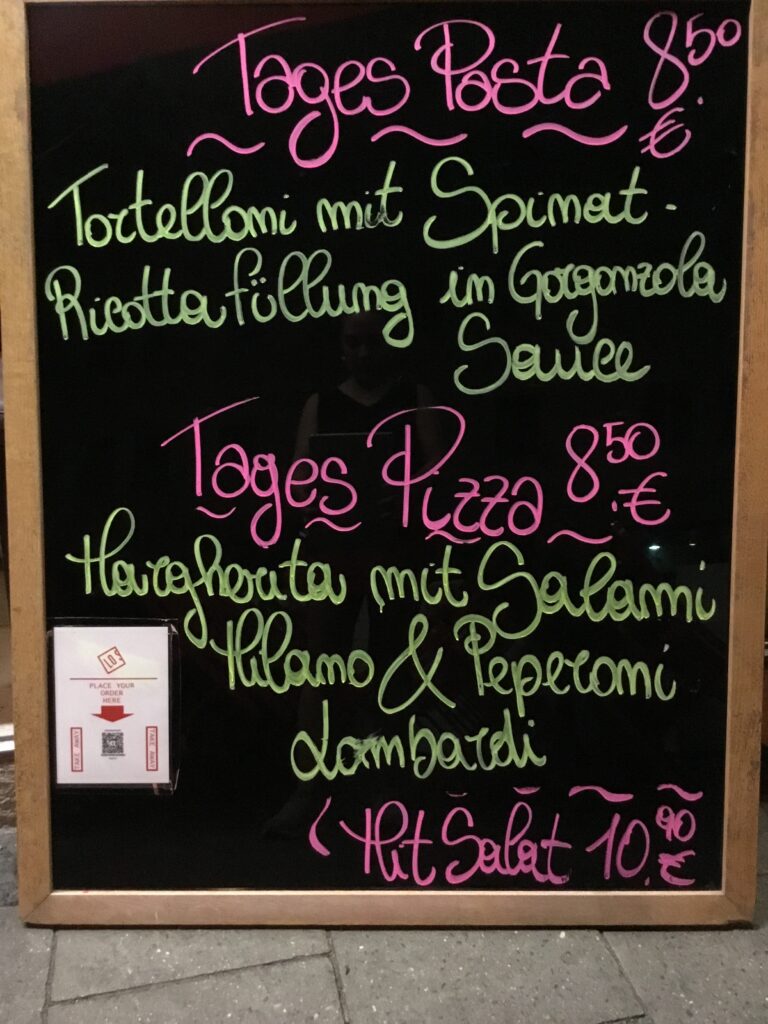 Tages Pasta 8.50 €
Tortelloni mit Spinat-
Ricotta füllung in Gorgonzola
Sauce
Tages Pizza 8.50 €
Margherita mit Salami
Milano & Peperoni
Lombardi
Mit Salat 10.90 €
LOS
PLACE YOUR
ORDER
HERE
TAKE AWAY
TAKE AWAY